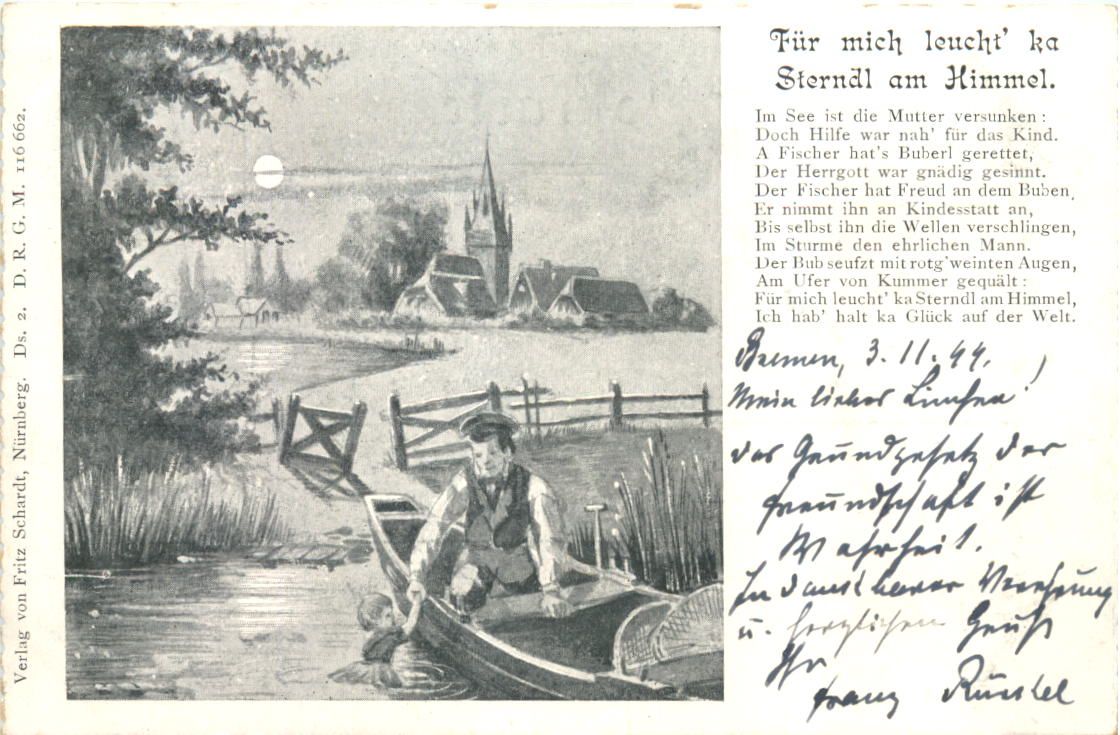 Für mich leucht' ka
Sterndl am Himmel.
Im See ist die Mutter versunken:
Doch Hilfe war nah' für das Kind.
A Fischer hat's Buberl gerettet,
Der Herrgott war gnädig gesinnt.
Der Fischer hat Freud an dem Buben,
Er nimmt ihn an Kindesstatt an,
Bis selbst ihn die Wellen verschlingen,
Im Sturme den ehrlichen Mann.
Der Bub seufzt mit rotg'weinten Augen,
Am Ufer von Kummer gequält:
Für mich leucht' ka Sterndl am Himmel,
Ich hab' halt ka Glück auf der Welt.
Bremen, 3. 11. 44.
Mein liebes
das Grundgesetz der
Freundschaft ist
Wahrheit.
In dankbarer Verehrung
u. herzlichem Gruß
Ihr
Franz
Verlag von Fritz Schardt, Nürnberg. Ds. 2. D. R. G. M. 116662.